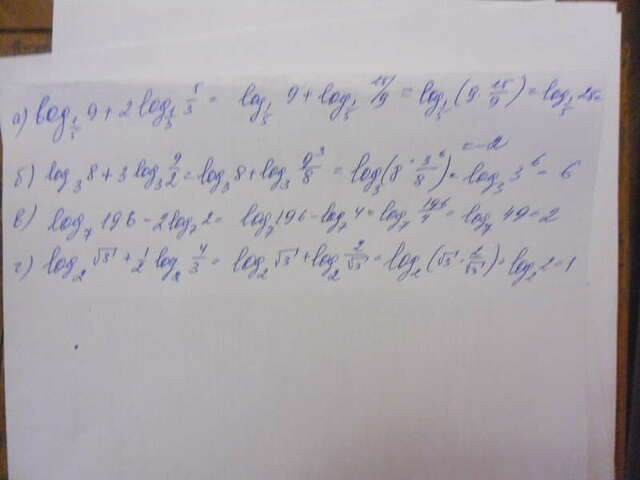 а) log_{1/5} 9 + 2 log_{1/5} 5/3 = log_{1/5} 9 + log_{1/5} 25/9 = log_{1/5} (9 · 25/9) = log_{1/5} 25 =
= -2
б) log_3 8 + 3 log_3 9/2 = log_3 8 + log_3 9^3/8 = log_3 (8 · 3^6/8) = log_3 3^6 = 6
в) log_7 196 - 2 log_7 2 = log_7 196 - log_7 4 = log_7 196/4 = log_7 49 = 2
г) log_2 √3 + 1/2 log_2 4/3 = log_2 √3 + log_2 2/√3 = log_2 (√3 · 2/√3) = log_2 2 = 1